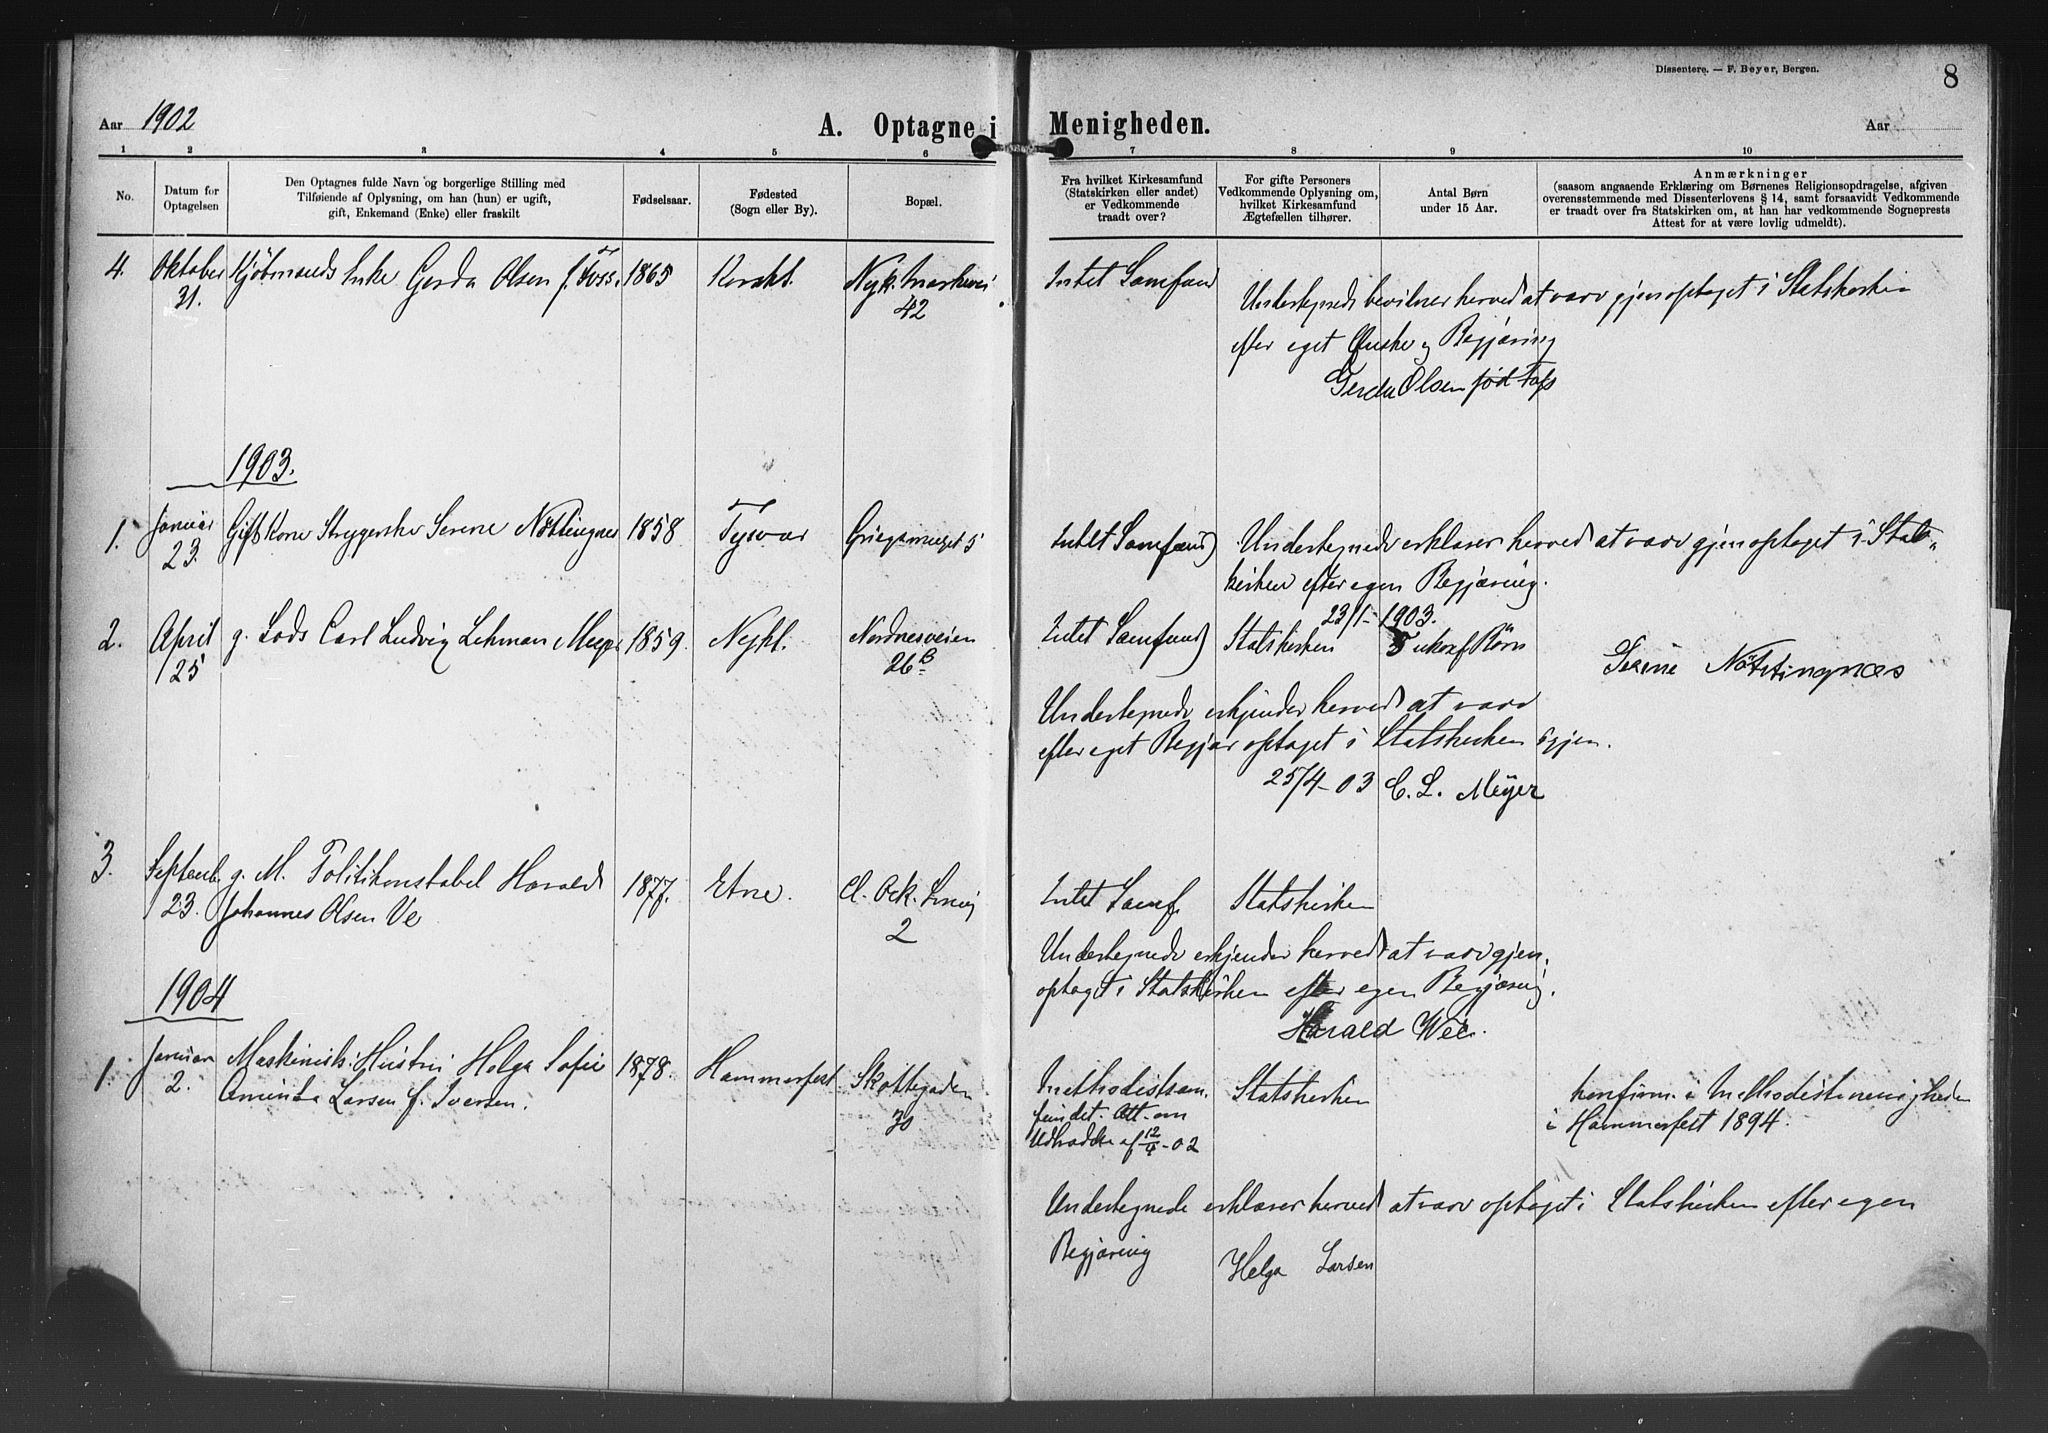 Dissentere. — F. Beyer, Bergen.
8
Aar 1902
A. Optagne i Menigheden.
Aar
1 2 3 4 5 6 7 8 9 10
No.
Datum for
Optagelsen
Den Optagnes fulde Navn og borgerlige Stilling med
Tilføiende af Oplysning, om han (hun) er ugift,
gift, Enkemand (Enke) eller fraskilt
Fødselsaar.
Fødested
(Sogn eller By).
Bopæl.
Fra hvilket Kirkesamfund
(Statskirken eller andet)
er Vedkommende
traadt over?
For gifte Personers
Vedkommende Oplysning om,
hvilket Kirkesamfund
Ægtefællen tilhører.
Antal Børn
under 15 Aar.
Anmærkninger
(saasom angaaende Erklæring om Børnenes Religionsopdragelse, afgiven
overensstemmende med Dissenterlovens § 14, samt forsaavidt Vedkommende
er traadt over fra Statskirken om, at han har vedkommende Sogneprests
Attest for at være lovlig udmeldt).
4. Oktober Kjøbmands Enke Gerda Olsen f. Foss. 1865 Korskk. Nyk. Markevei Intet Samfund
31. 42
Undertegnede bevidner herved at være gjenoptaget i Statskirken
efter eget Ønske og Begjæring
Gerda Olsen fød Foss
1903.
1. Januar Gift Kone Strygerske Serene Nøttingnes 1858 Tysvær Griegsmuget 5 Intet Samfund Undertegnede erklærer herved at være gjenoptaget i Stats-
23. kirken efter egen Begjæring.
23/1-1903.
2. April g. Lods Carl Ludvig Lehman Meyer 1859. Nykk. Nordnesveien Intet Samfund Statskirken 5 ukonf Børn
25 26 B
Serine Nøttingnæs
Undertegnede erkjender herved at være
efter eget Begjær optaget i Statskirken igjen.
25/4-03 C. L. Meyer
3. Septemb. g. M. Politikonstabel Harald 1877. Etne. Intet Samf. Statskirken
23. Johannes Olsen Ve 2
Undertegnede erkjender herved at være gjen-
optaget i Statskirken efter egen Begjæring.
Harald Wee.
1904
1. Januar Maskinists Hustru Helga Sofie 1878. Hammerfest Skottegaden Methodistsam- Statskirken konfirm. i Methodistmenigheden
2. Aminta Larsen f. Iversen. 30 fundet. Att. om i Hammerfest 1894.
Udtrædelse af 12/4-02
Undertegnede erklærer herved at være optaget i Statskirken efter egen
Begjæring Helga Larsen